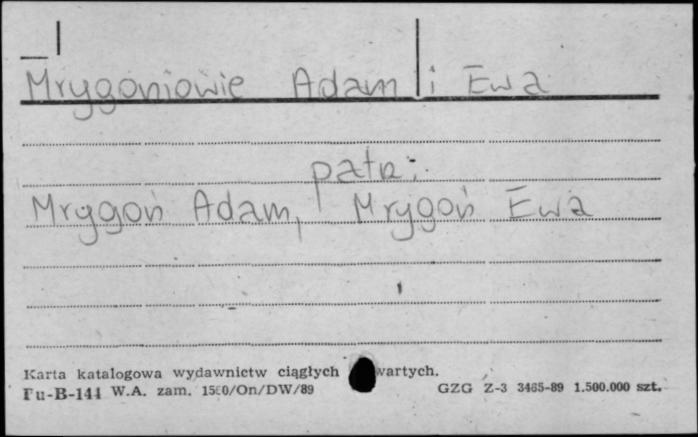 Mrygoniowie Adam i Ewa
patrz:
Mrygoń Adam, Mrygoń Ewa
Karta katalogowa wydawnictw ciągłych wartych.
Pu-B-144 W.A. zam. /On/DW/89 GZG Z-3 3465-89 1.500.000 szt.